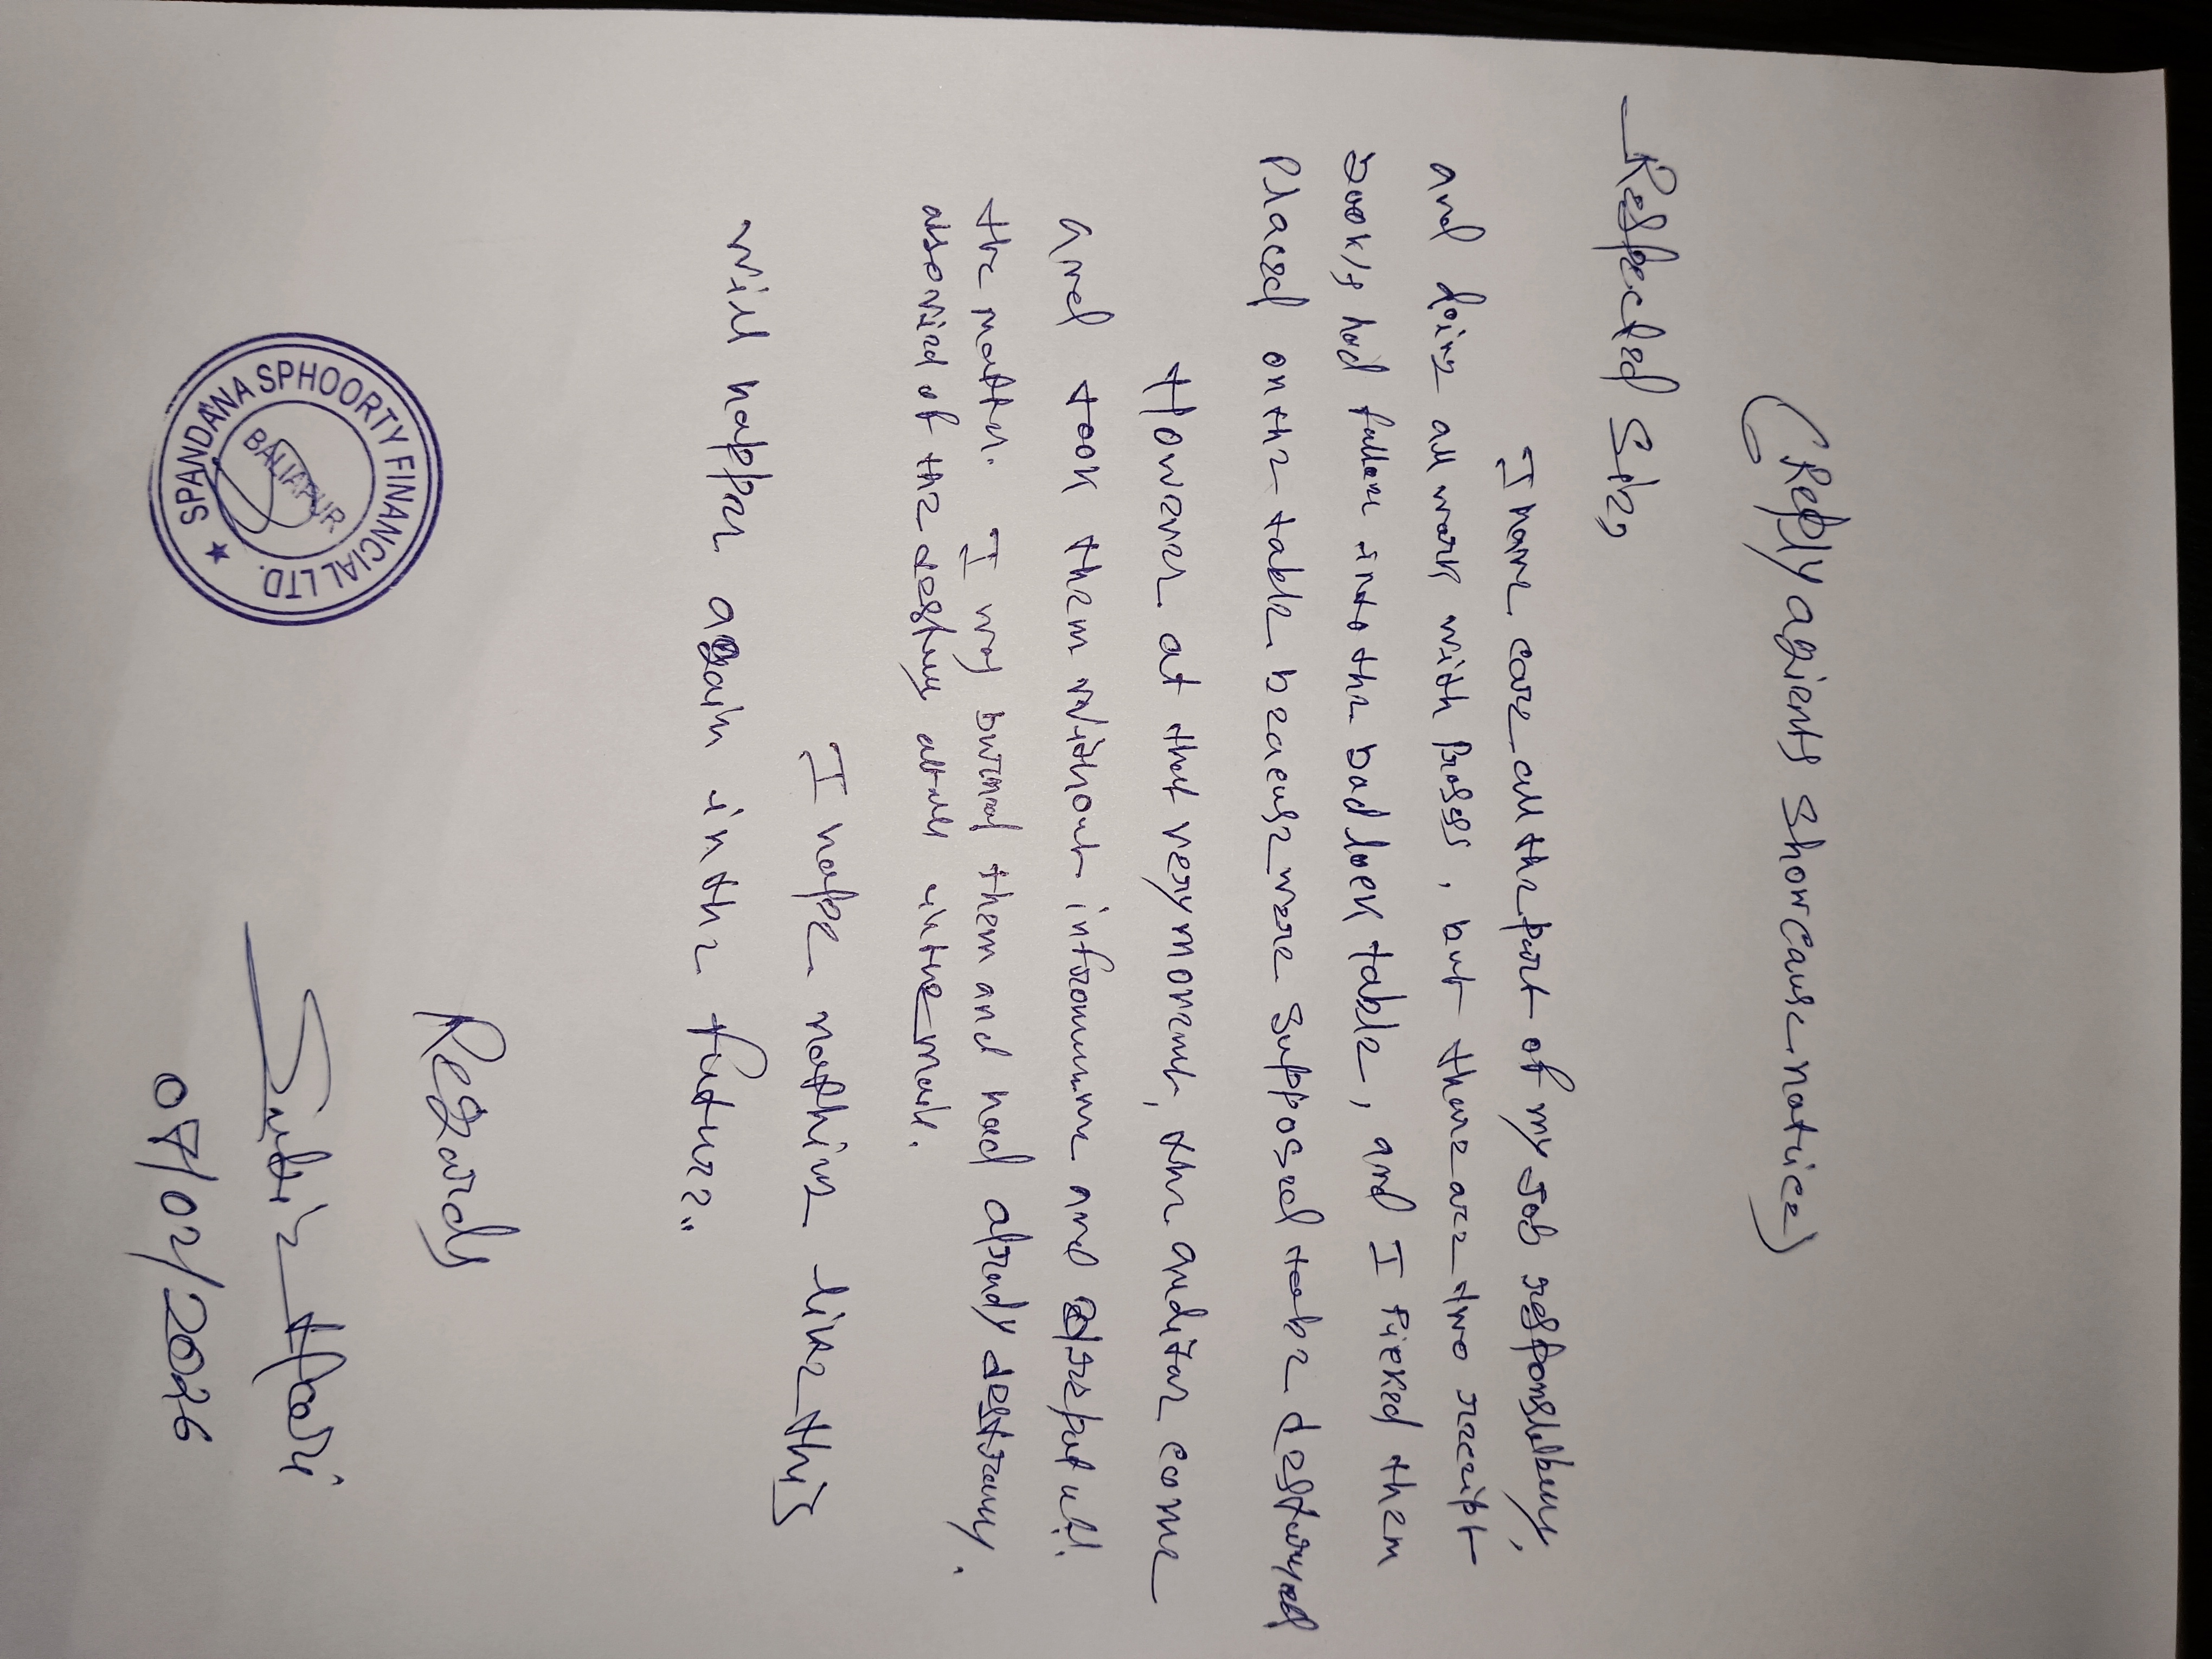 (Reply agients Show cause notice)
Respected Sir,
I have care all the part of my Job responsibility,
and doing all work with Proses, but there are two receipt
books had fallen into the bad look table, and I Picked them
Placed on the table because were supposed to be destroyed
However at that very moment, the auditor come
and took them without informing me and
the matter. I my burned them and had already destroy.
of the destroy after in the mail.
I hope nothing like this
will happen again in the future."
Regards
Hari
07/02/2026
SPANDANA SPHOORTY FINANCIAL LTD.
BALIAPUR